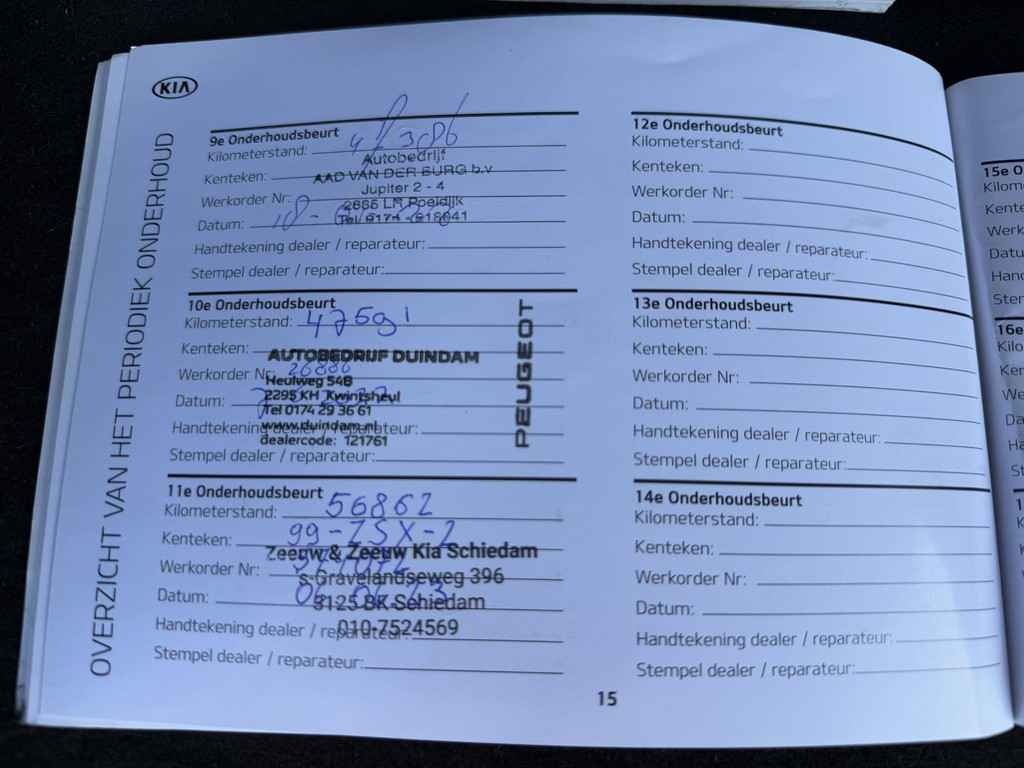 KIA
OVERZICHT VAN HET PERIODIEK ONDERHOUD
9e Onderhoudsbeurt
Kilometerstand:
Autobedrijf
Kenteken:
AAD VAN DER BURG b.v
Jupiter 2 - 4
Werkorder Nr:
2685 LM Poeldijk
Datum: 18-
Tel. 0174
Handtekening dealer / reparateur:
Stempel dealer / reparateur:
10e Onderhoudsbeurt
Kilometerstand: 47591
Kenteken:
AUTOBEDRIJF DUINDAM
PEUGEOT
Werkorder Nr: 26886
Heulweg 54B
2295 KH Kwintsheul
Datum:
Tel 0174 29 36 61
www.duindam.nl
Handtekening dealer / reparateur:
dealercode: 121761
Stempel dealer / reparateur:
11e Onderhoudsbeurt
Kilometerstand: 56862
Kenteken: 99-ZSX-2
Zeeuw & Zeeuw Kia Schiedam
Werkorder Nr:
s-Gravelandseweg 396
Datum: 06.06.23
3125 BK Schiedam
Handtekening dealer / reparateur:
010-7524569
Stempel dealer / reparateur:
12e Onderhoudsbeurt
Kilometerstand:
Kenteken:
Werkorder Nr:
Datum:
Handtekening dealer / reparateur:
Stempel dealer / reparateur:
13e Onderhoudsbeurt
Kilometerstand:
Kenteken:
Werkorder Nr:
Datum:
Handtekening dealer / reparateur:
Stempel dealer / reparateur:
14e Onderhoudsbeurt
Kilometerstand:
Kenteken:
Werkorder Nr:
Datum:
Handtekening dealer / reparateur:
Stempel dealer / reparateur:
15
15e O
Kilom
Kente
Werk
Datu
Hand
Ster
16e
Kilo
Ken
We
Da
Ha
St